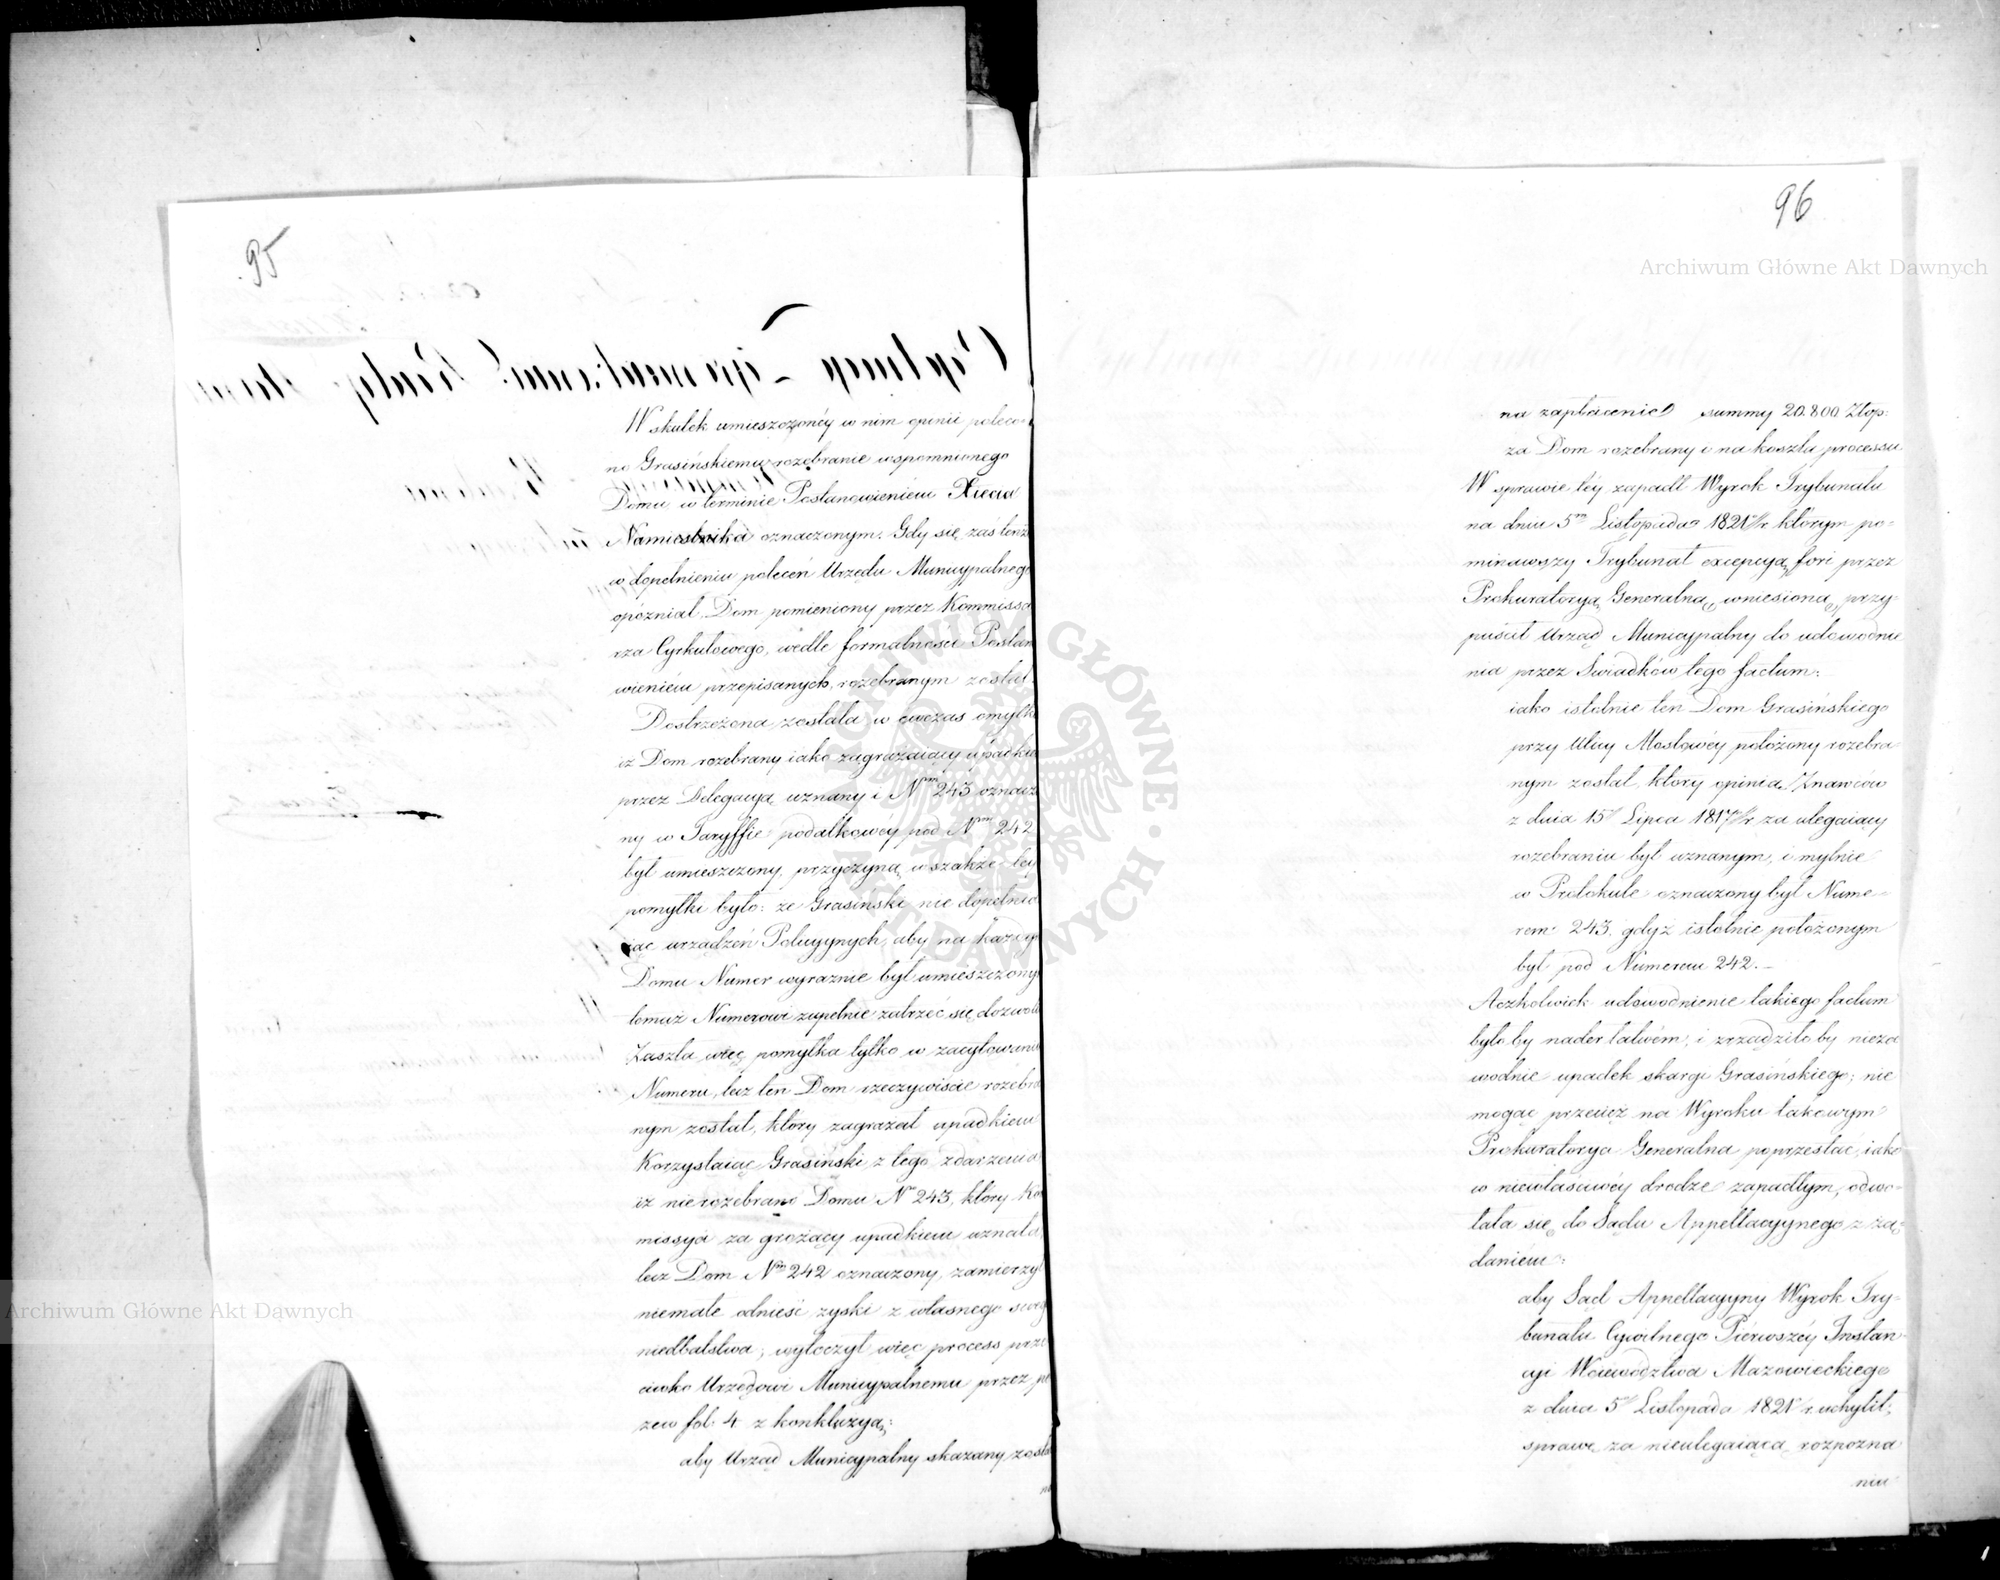 95
W skutek umieszczonéy w nim opinii poleco-
no Grasińskiemu rozebranie wspomnionego
Domu w terminie Postanowieniem Xięcia
Namiestnika oznaczonym. Gdy się zaś tenże
w dopełnieniu poleceń Urzędu Municypalnego
opóźniał, Dom pomieniony przez Kommissa
rza Cyrkułowego, wedle formalności Postan
wieniem przepisanych, rozebranym został.
Dostrzeżona została w ówczas omyłka
iż Dom rozebrany iako zagrażaiący upadkiem
przez Delegacyą uznany i Nrm 243 oznaczo
ny w Taryffie podatkowéy pod Nrm 242
był umieszczony, przyczyną wszakże téy
pomyłki było: że Grasiński nie dopełnia
iąc urządzeń Policyynych, aby na każdym
Domu Numer wyraźnie był umieszczony
temuż Numerowi zupełnie zatrzeć się dozwolił
Zaszła więc pomyłka tylko w zacytowaniu
Numeru, lecz ten Dom rzeczywiście rozebra
nym został, który zagrażał upadkiem
Korzystaiąc Grasiński z tego zdarzenia
iż nie rozebrano Domu Nr 243, który Kom
missya za grożący upadkiem uznała,
lecz Dom Nrm 242 oznaczony, zamierzył
niemałe odnieść zyski z własnego swego
niedbalstwa; wytoczył więc process prze
ciwko Urzędowi Municypalnemu przez po
zew fol: 4 z konkluzyą:
aby Urząd Municypalny skazany został
na
96
na zapłacenie summy 20.800 Złop:
za Dom rozebrany i na koszta processu
W sprawie téy zapadł Wyrok Trybunału
na dniu 5m Listopada 1821 r którym po-
minąwszy Trybunał excepcyą fori przez
Prokuratoryą Generalną wniesioną, przy-
puścił Urząd Municypalny do udowodnie
nia przez Swiadków tego factum:
iako istotnie ten Dom Grasińskiego
przy Ulicy Mostowéy położony rozebra-
nym został, który opinią Znawców
z dnia 15 Lipca 1817 r za ulegaiący
rozebraniu był uznanym, i mylnie
w Protokule oznaczony był Nume-
rem 243, gdyż istotnie położonym
był pod Numerem 242.
Aczkolwiek udowodnienie takiego factum
byłoby nader łatwém, i zrządziłoby nieza
wodnie upadek skargi Grasińskiego; nie
mogąc przecież na Wyroku takowym
Prokuratorya Generalna poprzestać, iako
w niewłaściwéy drodze zapadłym, odwo-
łała się do Sądu Appellacyynego z żą-
daniem:
aby Sąd Appellacyyny Wyrok Try-
bunału Cywilnego Piérwszéy Instan-
cyi Woiewództwa Mazowieckiego
z dnia 5 Listopada 1821 r. uchylił;
sprawę za nieulegaiącą rozpozna
niu
Archiwum Główne Akt Dawnych
Archiwum Główne Akt Dawnych
ARCHIWUM GŁÓWNE AKT DAWNYCH